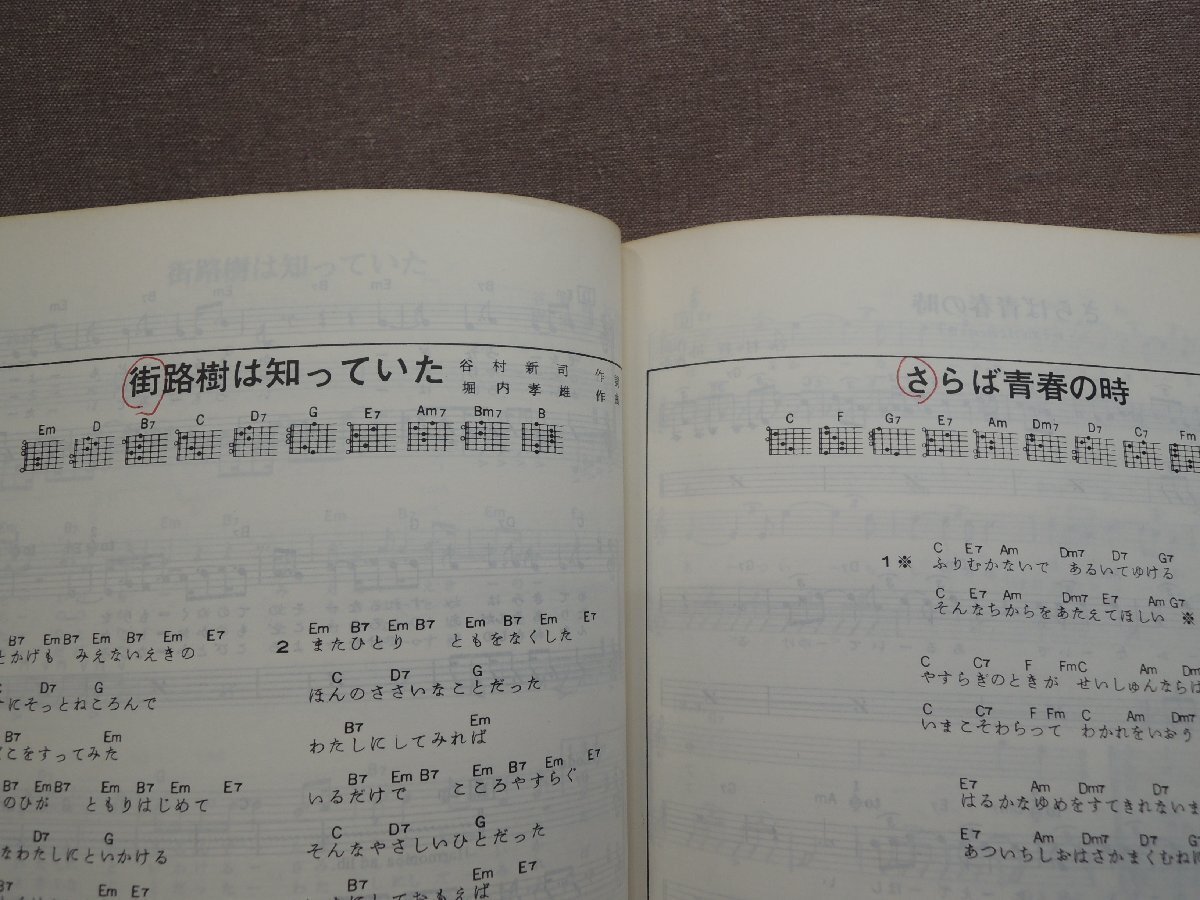 街路樹は知っていた
谷村新司 作
堀内孝雄 作
Em D B7 C D7 G E7 Am7 Bm7 B
B7 Em B7 Em B7 Em E7
とかげも みえないえきの
C D7 G
にそっとねころんで
B7 Em
こをすってみた
B7 Em B7 Em B7 Em E7
のひが ともりはじめて
D7 G
なわたしにといかける
B7 Em E7
2
Em B7 Em B7 Em B7 Em E7
またひとり ともをなくした
C D7 G
ほんのささいなことだった
B7 Em
わたしにしてみれば
B7 Em B7 Em B7 Em E7
いるだけで こころやすらぐ
C D7 G
そんなやさしいひとだった
B7 Em E7
にしておもえば
さらば青春の時
C F G7 E7 Am Dm7 D7 C7 Fm
C E7 Am Dm7 D7 G7
1 ※ ふりむかないで あるいてゆける
C E7 Am Dm7 E7 Am G7
そんなちからをあたえてほしい ※
C C7 F Fm C Am Dm
やすらぎのときが せいしゅんならば
C C7 F Fm C Am Dm7
いまこそわらって わかれをいおう
E7 Am Dm7 D7
はるかなゆめをすてきれないま
E7 Am Dm7 D7 G
あついちしおはさかまくむねに